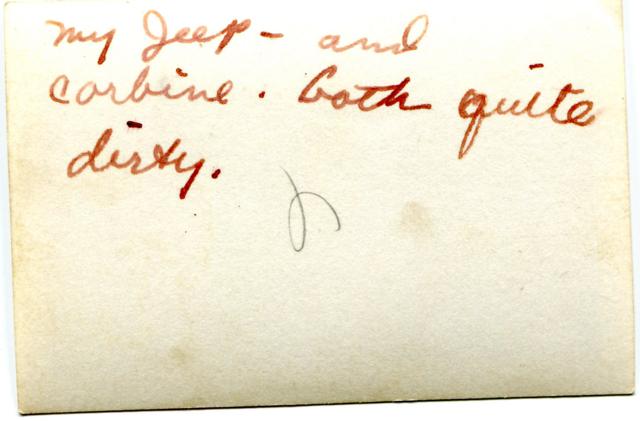 my Jeep - and
carbine. both quite
dirty.